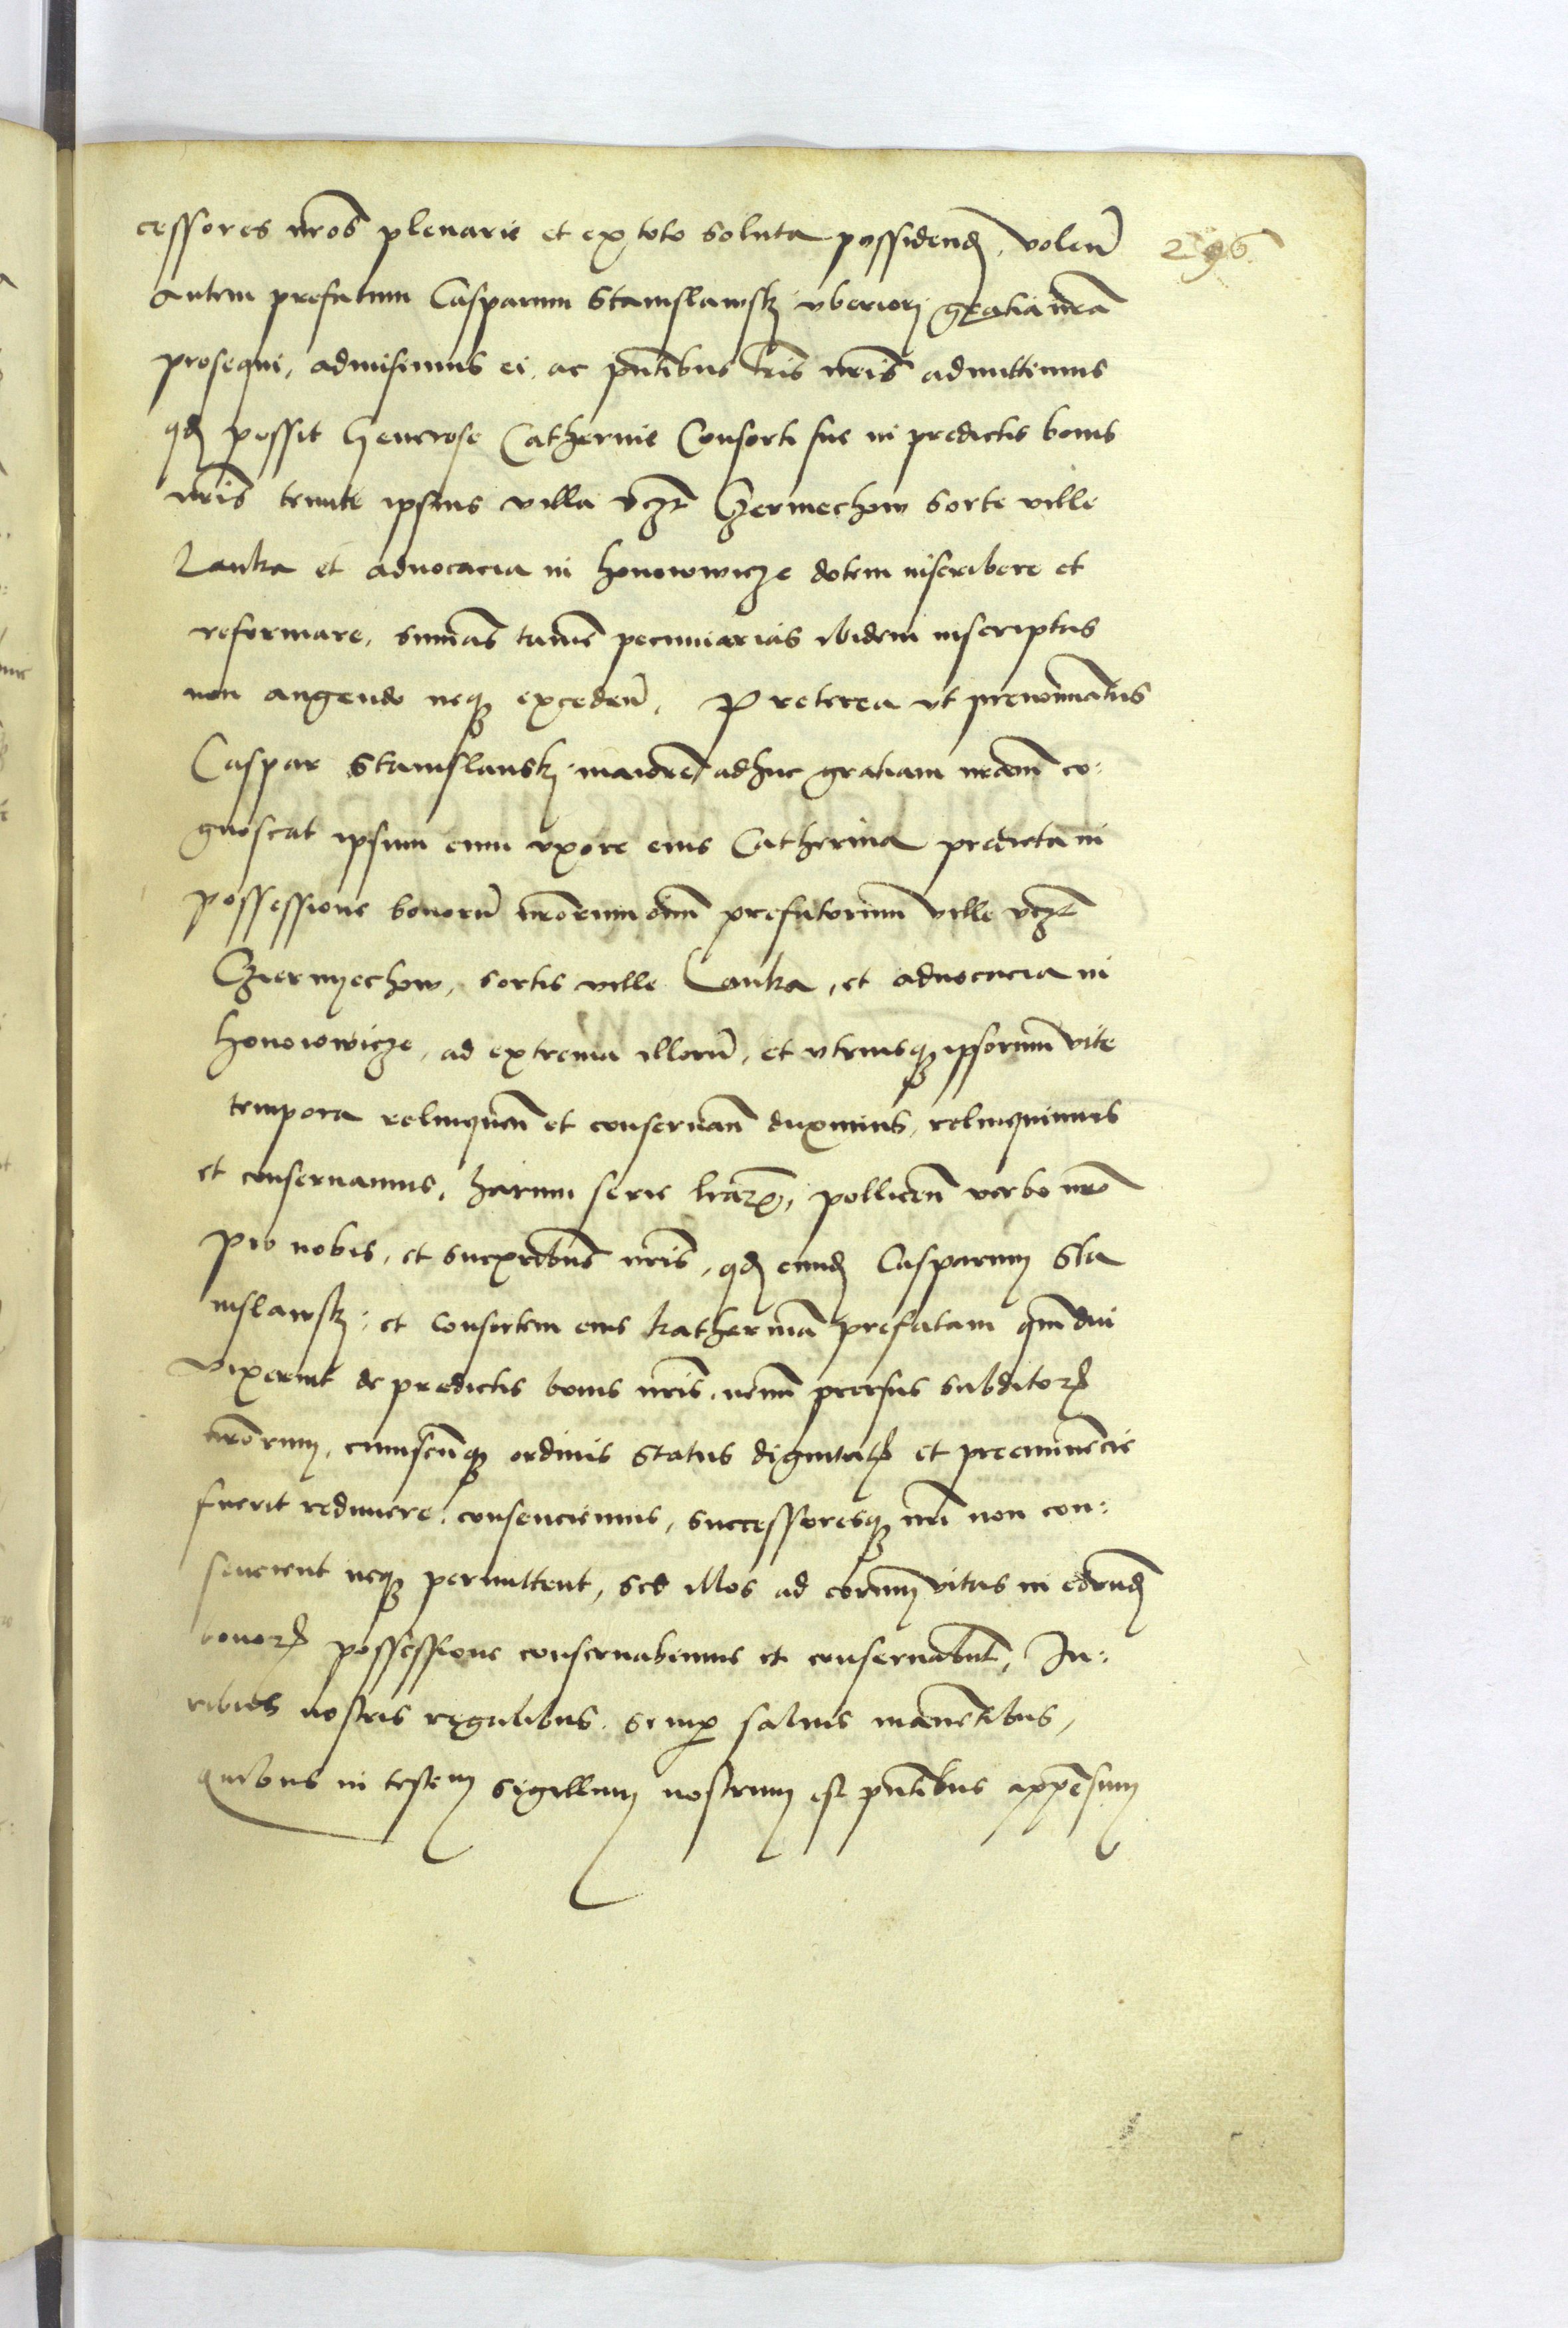 cessores nros plenarie et ex toto soluta possidend, volen̄
296
autem prefatum Casparum Stanislawskj vberiorj gratia nrā
prosequi, admisimus ei, ac pn̄tibus lris nris admittimus
qd possit Generose Catherine Consorti sue in predictis bonis
nris tenute ipsius villa vczt Czermechow sorte ville
Lanka et aduocacia in honowwicze dotem inscribere et
reformare, summas tamē pecuniarias ibidem inscriptas
non augendo neqz exceden̄. Preterea vt prenominatus
Caspar Stanislauskj maiorē adhuc gratiam nram co:
gnoscat ipsum cum vxore eius Catherina predicta in
possessione bonorū nrorum oīm prefatorum ville vczt
Czermyechow, sortis ville Lanka, et aduocacia in
honowwicze, ad extrema illorū, et vtriusqz ipsorum vite
tempora relinquen̄ et conseruan̄ duximus, relinquimus
et conseruamus, harum serie lrarz, pollicen̄ verbo nro
pro nobis, et sucxoribus nris, qd eund Casparum Sta
nislawskj et consortem eius Katherinā prefatam qmdiu
vixerint de predictis bonis nris, nemī prorsus subditorz
nrorum, cuiuscūqz ordinis status dignitatz et preeminēcie
fuerit redimere consenciemus, successoresqz nri non con:
sencient neqz permittent, sed illos ad eorum vitas in eorund
bonorz possessione conseruabimus et conseruabūt, Iu:
ribus nostris regalibus semp saluis manētibus,
quibus in testem sigillum nostrum est pn̄tibus appēsum